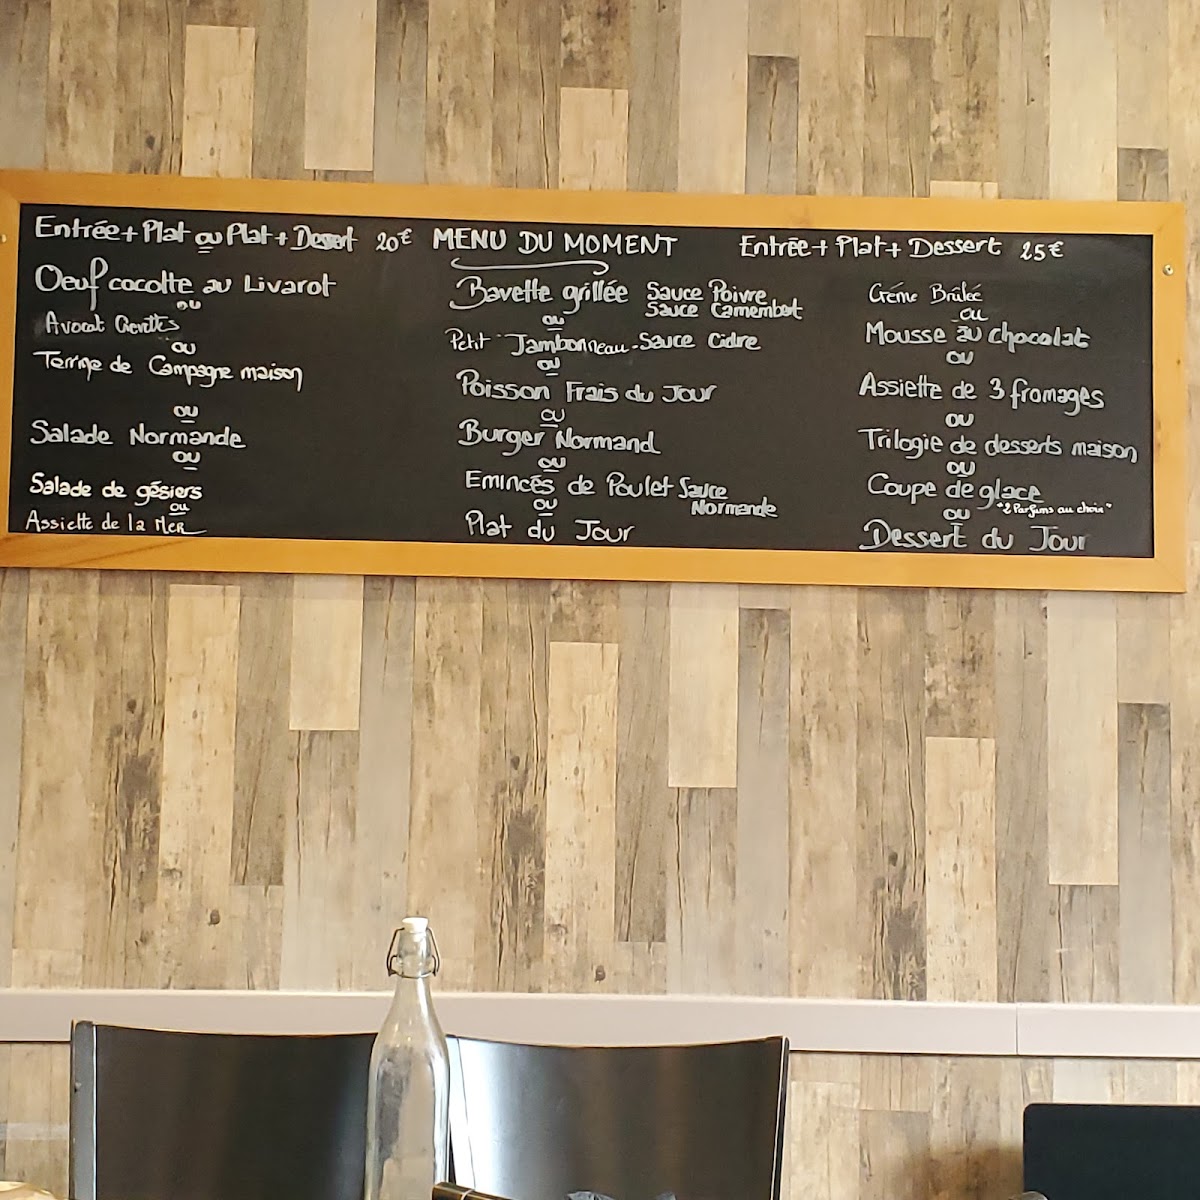 Entrée + Plat ou Plat + Dessert 20€
MENU DU MOMENT
Entrée + Plat + Dessert 25€
Oeuf cocotte au Livarot
ou
Avocat Crevettes
ou
Terrine de Campagne maison
ou
Salade Normande
ou
Salade de gésiers
ou
Assiette de la Mer
Bavette grillée Sauce Poivre
Sauce Camembert
ou
Petit Jambonneau - Sauce Cidre
ou
Poisson Frais du Jour
ou
Burger Normand
ou
Emincés de Poulet Sauce
Normande
ou
Plat du Jour
Crème Brûlée
ou
Mousse au chocolat
ou
Assiette de 3 fromages
ou
Trilogie de desserts maison
ou
Coupe de glace
"2 Parfums au choix"
ou
Dessert du Jour